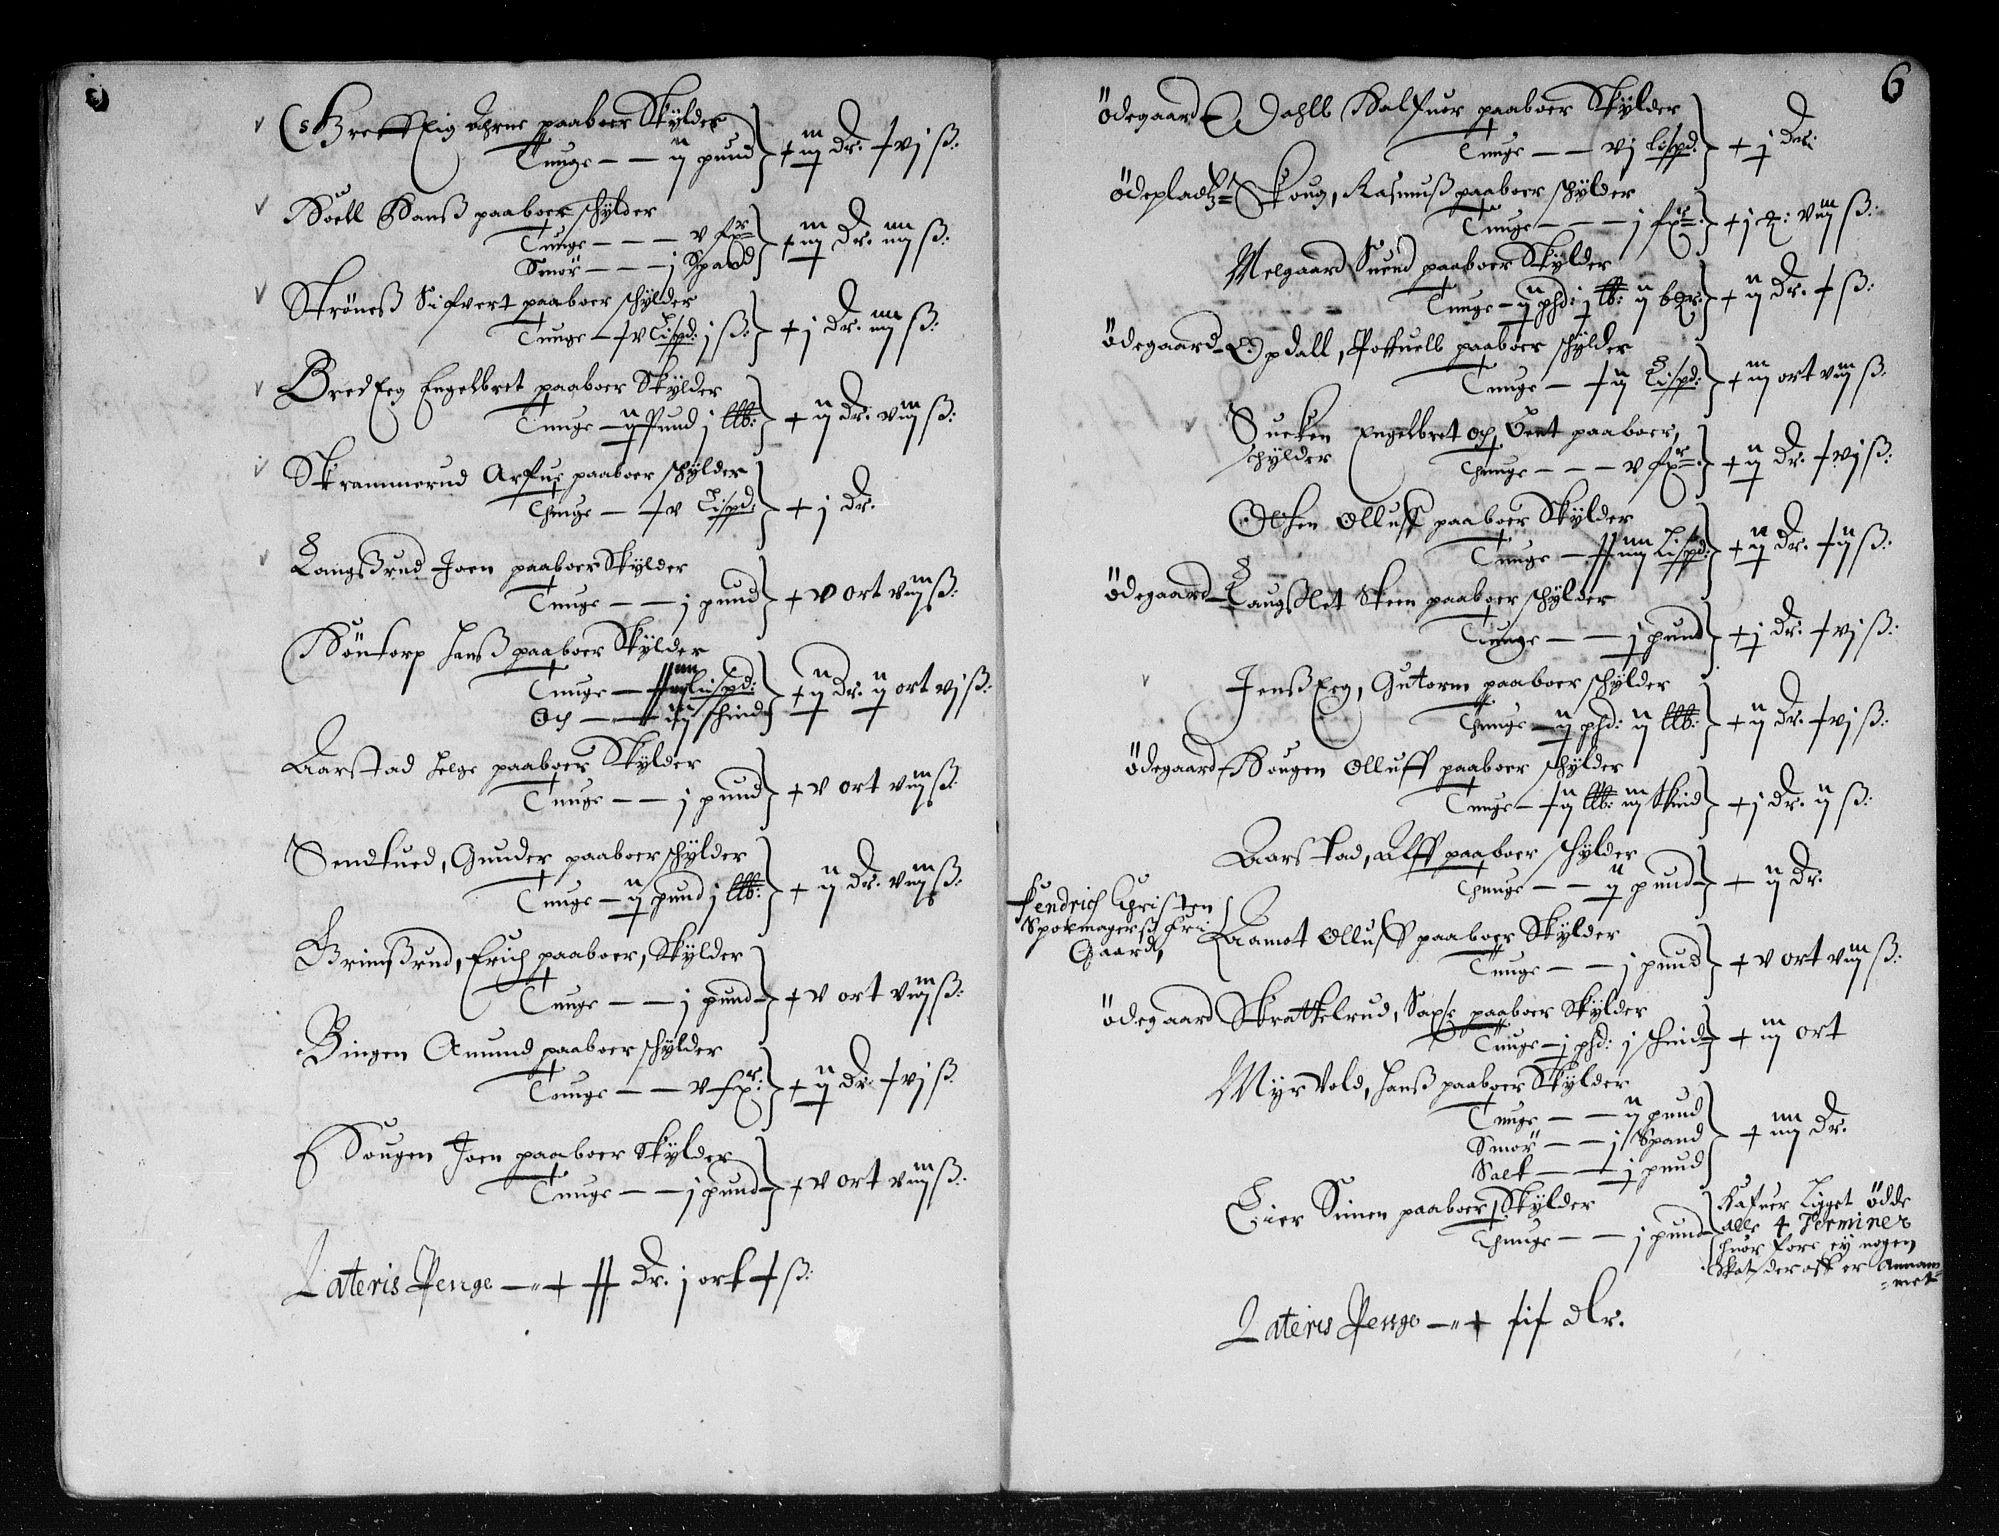 Bratteig Ahrne paaboer Skylder
Tunge — — ij pund + iij Dr. + vj ß:
Koell Hanß paaboer schylder
Tunge — — — v fxr + iij Dr. iiij ß:
Smör — — — j Spand
Ströneß Sifvert paaboer schylder
Tunge — + v Lispd: j ß: + j Dr. iiij ß:
Bred Eeg Engelbret paaboer Skylder
Tunge — ij Pund j llb: + ij Dr. viij ß:
Skrammerud paaboer schylder
Thunge — + v Lispd: + j Dr.
Langßrud Joen paaboer Skylder
Tunge — — j pund + v ort viij ß:
Höntorp Hanß paaboer Skylder
Tunge — Lispd: + ij Dr. ij ort vj ß:
Och — — iij schind
Aarstad Helge paaboer Skylder
Tunge — — j pund + v ort viij ß:
Sendtued, Gunder paaboer schylder
Tunge — ij pund j llb: + ij Dr. viij ß:
Grimßrud, Erich paaboer, Skylder
Tunge — — j pund + v ort viij ß:
Bingen Amund paaboer schylder
Tunge — — v fxr: + ij Dr. + vj ß
Hougen Joen paaboer Skylder
Tunge — — j pund + v ort viij ß:
Lateris Penge — + Dr. j ort + ß:
6
Ödegaard Dahlb Halfuor paaboer Skylder
Tunge — — vj Lispd. + j Dr:
Ödepladtz Skoug, Rasmuß paaboer schylder
Tunge — — — j fxr: + j viij ß:
Melgaard Suend paaboer Skylder
Tunge — ij phd: j llb: ij + ij Dr. + ß:
Ödegaard Opdall, paaboer schylder
Tunge — + ij Lispd: + iij ort viij ß:
Sueken Engelbret och paaboer,
schylder Thunge — — — v fxr + ij Dr. + vj ß:
Olluff paaboer Skylder
Tunge — iiij Lispd: + ij Dr. + ij ß:
Ödegaard Langßlet Steen paaboer schylder
Tunge — — j pund + j Dr. + vj ß:
Jenß Eeg, Gutorm paaboer schylder
Thunge — ij phd: ij llb: + ij Dr. + vj ß:
Ödegaard Hougen Olluff paaboer schylder
Tunge — + ij llb: iij Skind + j Dr. ij ß:
Aarstad, Alff paaboer schylder
Thunge — — ij pund + ij Dr.
Fendrich Christen
Spormagerß Fri
Gaard,
Aamot Olluff paaboer Skylder
Tunge — — j pund + v ort viij ß:
Ödegaard Skrattelrud, Saxe paaboer Skylder
Tunge — j phd: j schind + iij ort
Myrvold, Hanß paaboer Skylder
Tunge — — ij pund
Smör — — j Spand + iiij Dr.
Salt — — j pund
Eier Simen paaboer Skylder
Thunge — — j pund
Hafuer Ligget Ödde
alle 4 Terminer
huor fore ey nogen
Skat deraff er Annam
met
Lateris Penge — + dlr.